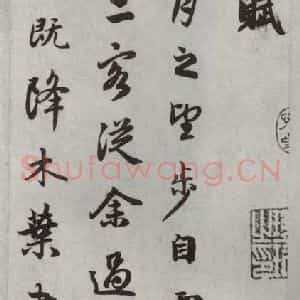 賦
月之望步自
二客從余過
既降木葉
Shufawang.CN